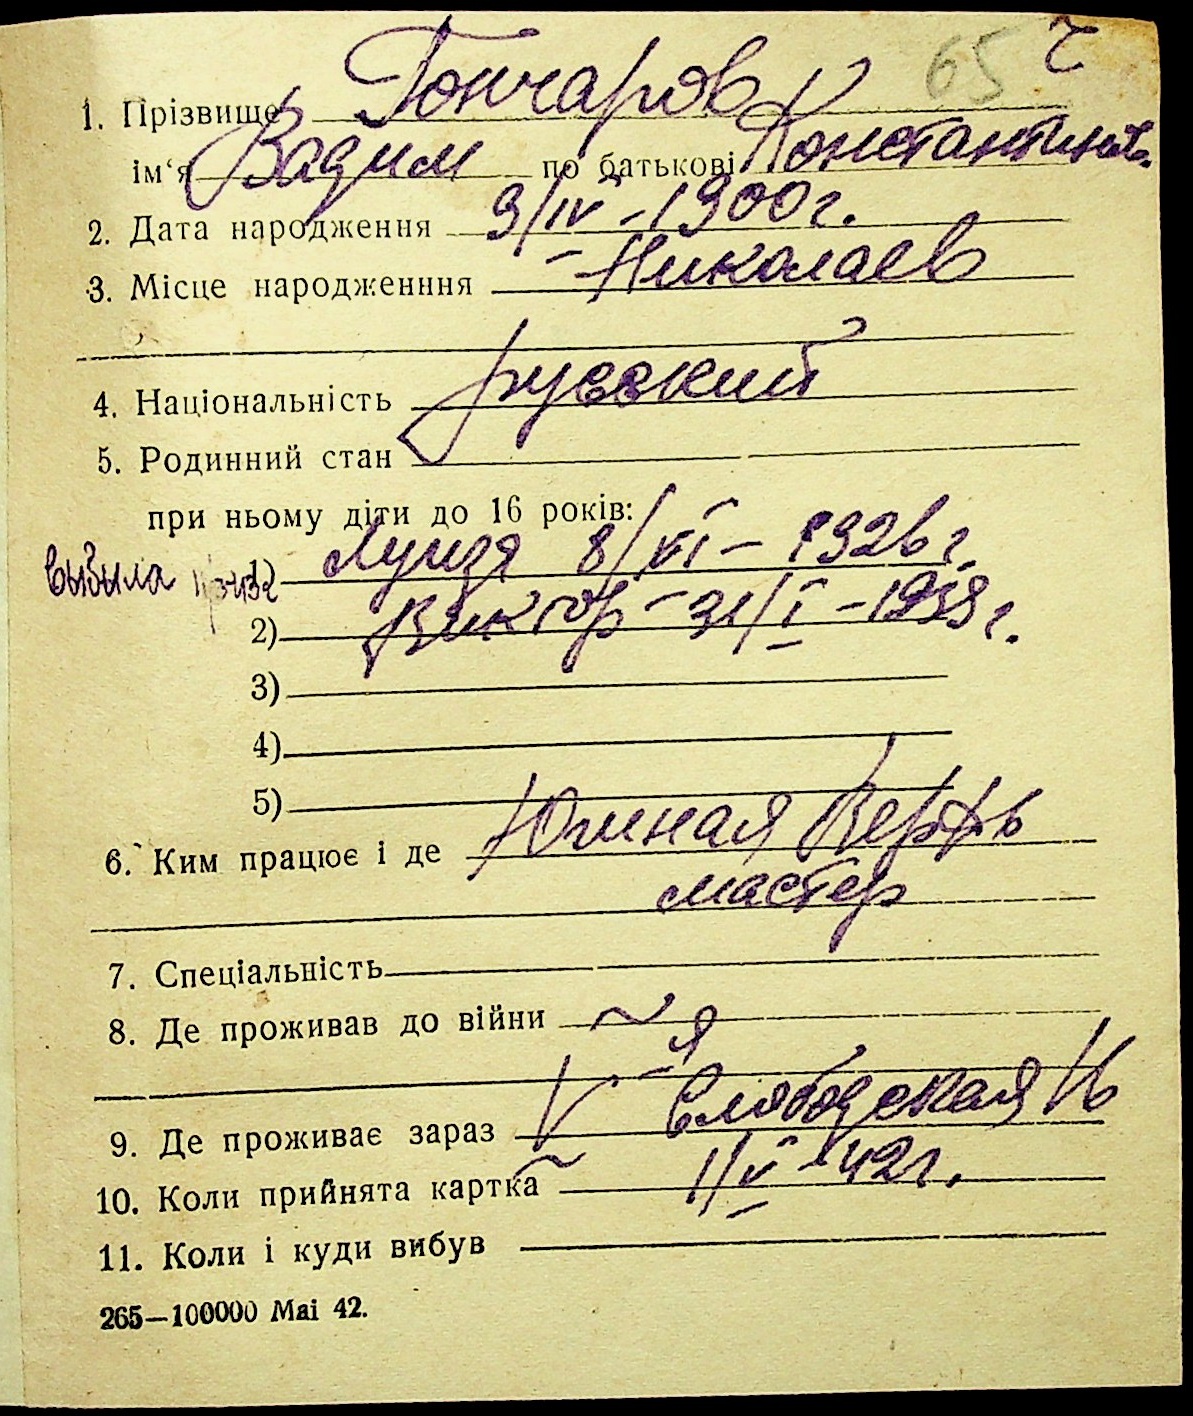 65 г
1. Прізвище Гончаров
ім'я Вадим по батькові Константинов.
2. Дата народження 9/IV - 1900 г.
3. Місце народженння - Николаев
4. Національність русский
5. Родинний стан
при ньому діти до 16 років:
выбыла 1) Луиза 8/VI - 1926 г.
2) Виктор - 31/I - 1938 г.
3)
4)
5)
6. Ким працює і де Южная Верфь
мастер
7. Спеціальність
8. Де проживав до війни
9. Де проживає зараз V - я Слободская
10. Коли прийнята картка 1/V - 42 г.
11. Коли і куди вибув
265—100000 Mai 42.